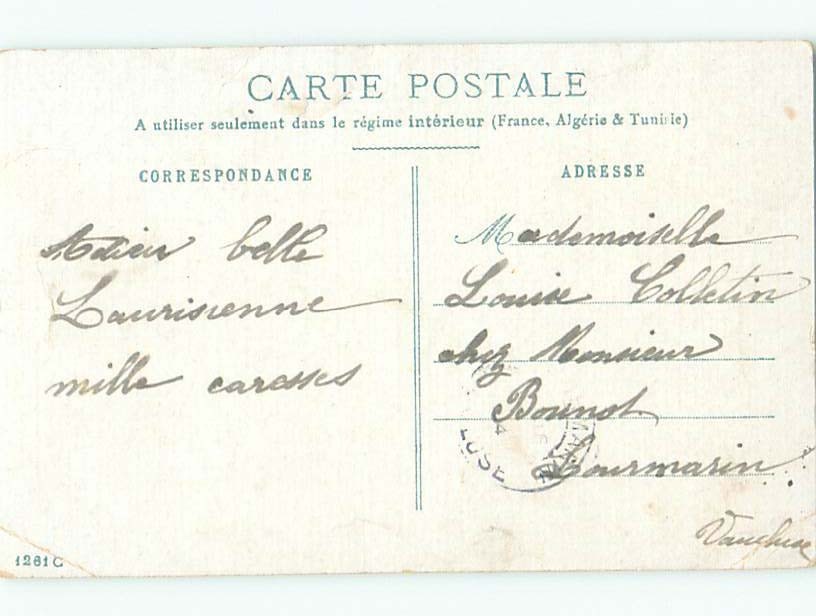 CARTE POSTALE
A utiliser seulement dans le régime intérieur (France, Algérie & Tunisie)
CORRESPONDANCE
Adieu belle
Laurisienne
mille caresses
ADRESSE
Mademoiselle
Louise Colletin
chez Monsieur
Bounot
Lourmarin
Vaucluse
1261 C